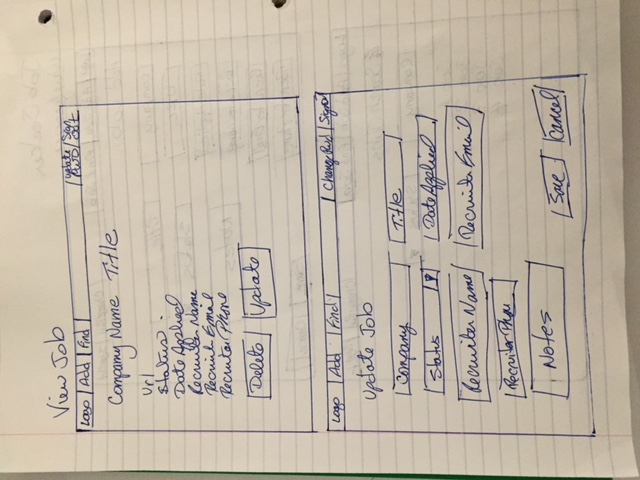 View Job
Logo Add Find Update PWD Sign out
Company Name Title
Url
Status
Date Applied
Recruiter Name
Recruit Email
Recruiter Phone
Delete Update
Logo Add Find Change Pwd Signout
Update Job
Company Title
Status Date Applied
Recruiter Name Recruiter Email
Recruiter Phone
Notes
Save Cancel